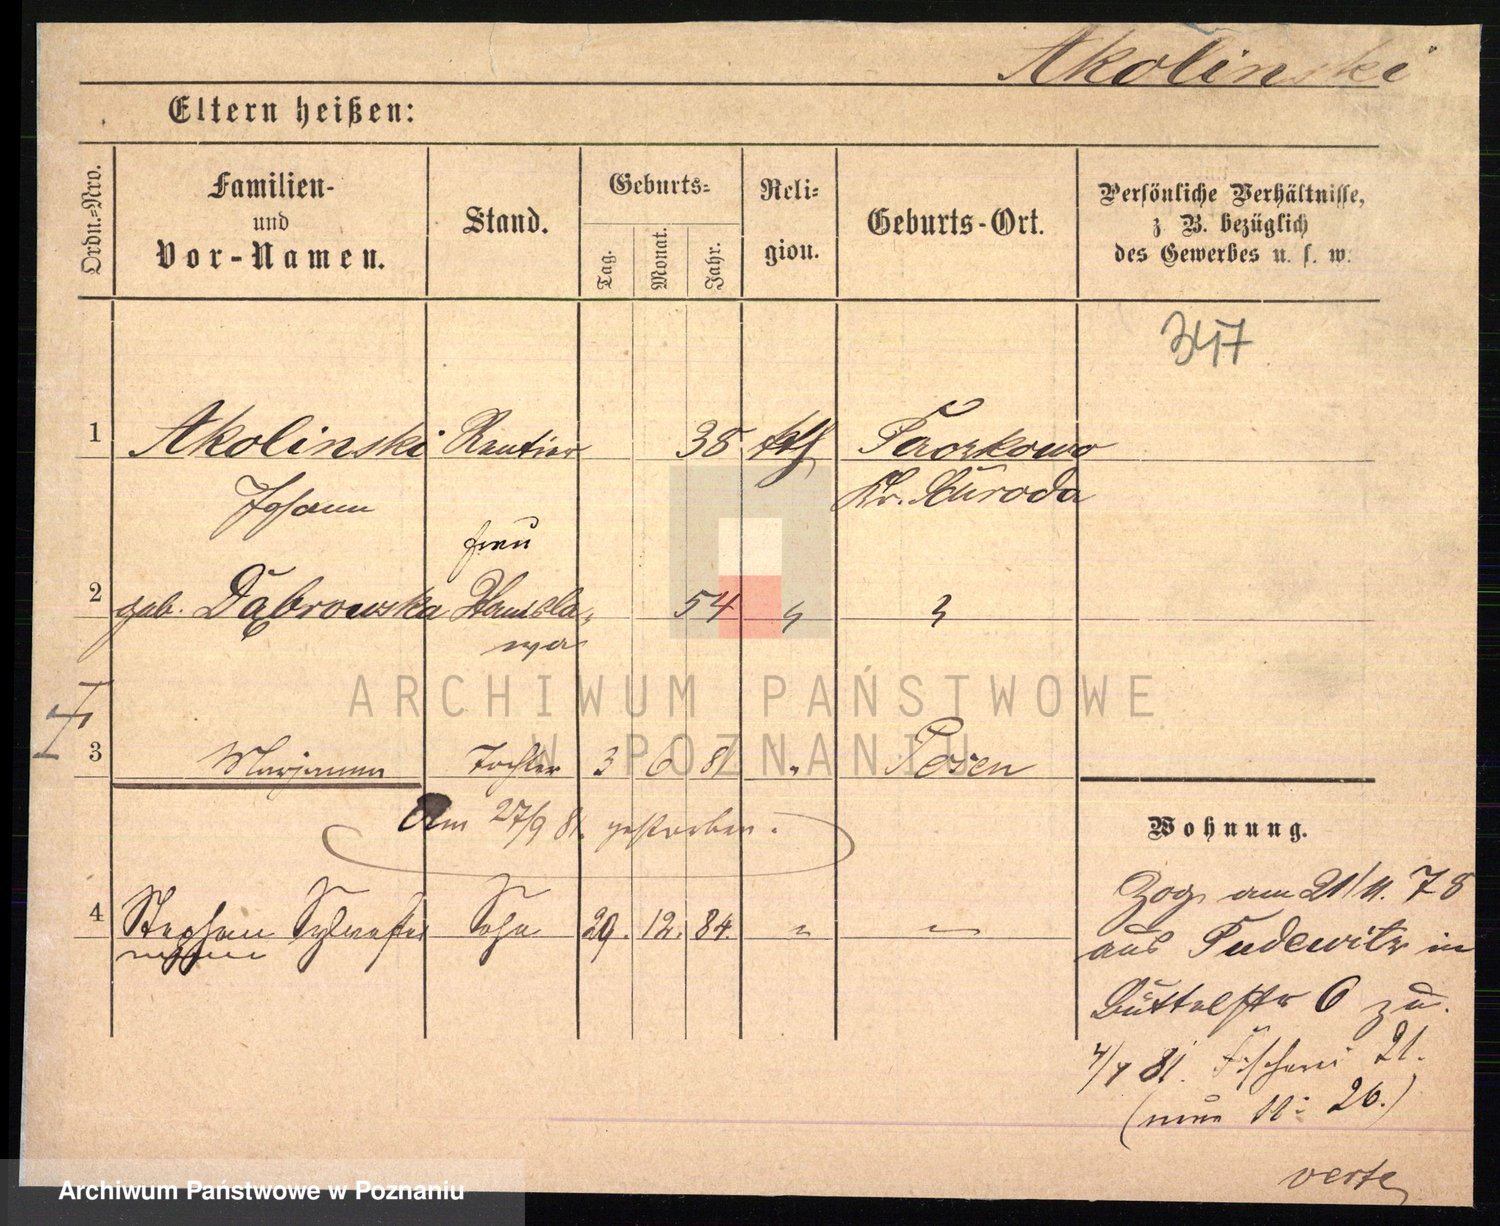 Akolinski
Eltern heißen:
Ordn.-Nro.
Familien-
und
Vor-Namen.
Stand.
Geburts-
Tag.
Monat.
Jahr.
Reli-
gion.
Geburts-Ort.
Persönliche Verhältnisse,
z. B. bezüglich
des Gewerbes u. s. w.
347
1 Akolinski Rentier 38 kth
Johann Kr. Schroda
frau
2 geb. Dąbrowska 54 "
3 Marjanna Tochter 3 6 81 " Posen
Am 27/9 81. gestorben.
4 Stephan Sylvester Sohn 29. 12. 84. " "
Wohnung.
Zog am 21/11. 78
aus Pudewitz in
Büttelstr 6 zu.
81. Fischerei 21.
(neue № 26.)
verte
ARCHIWUM PAŃSTWOWE
W POZNANIU
Archiwum Państwowe w Poznaniu